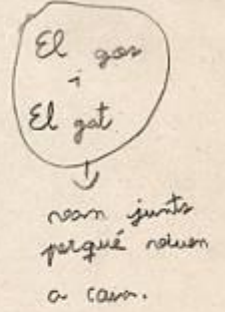 El gos
i
El gat
van junts
perquè viuen
a casa.